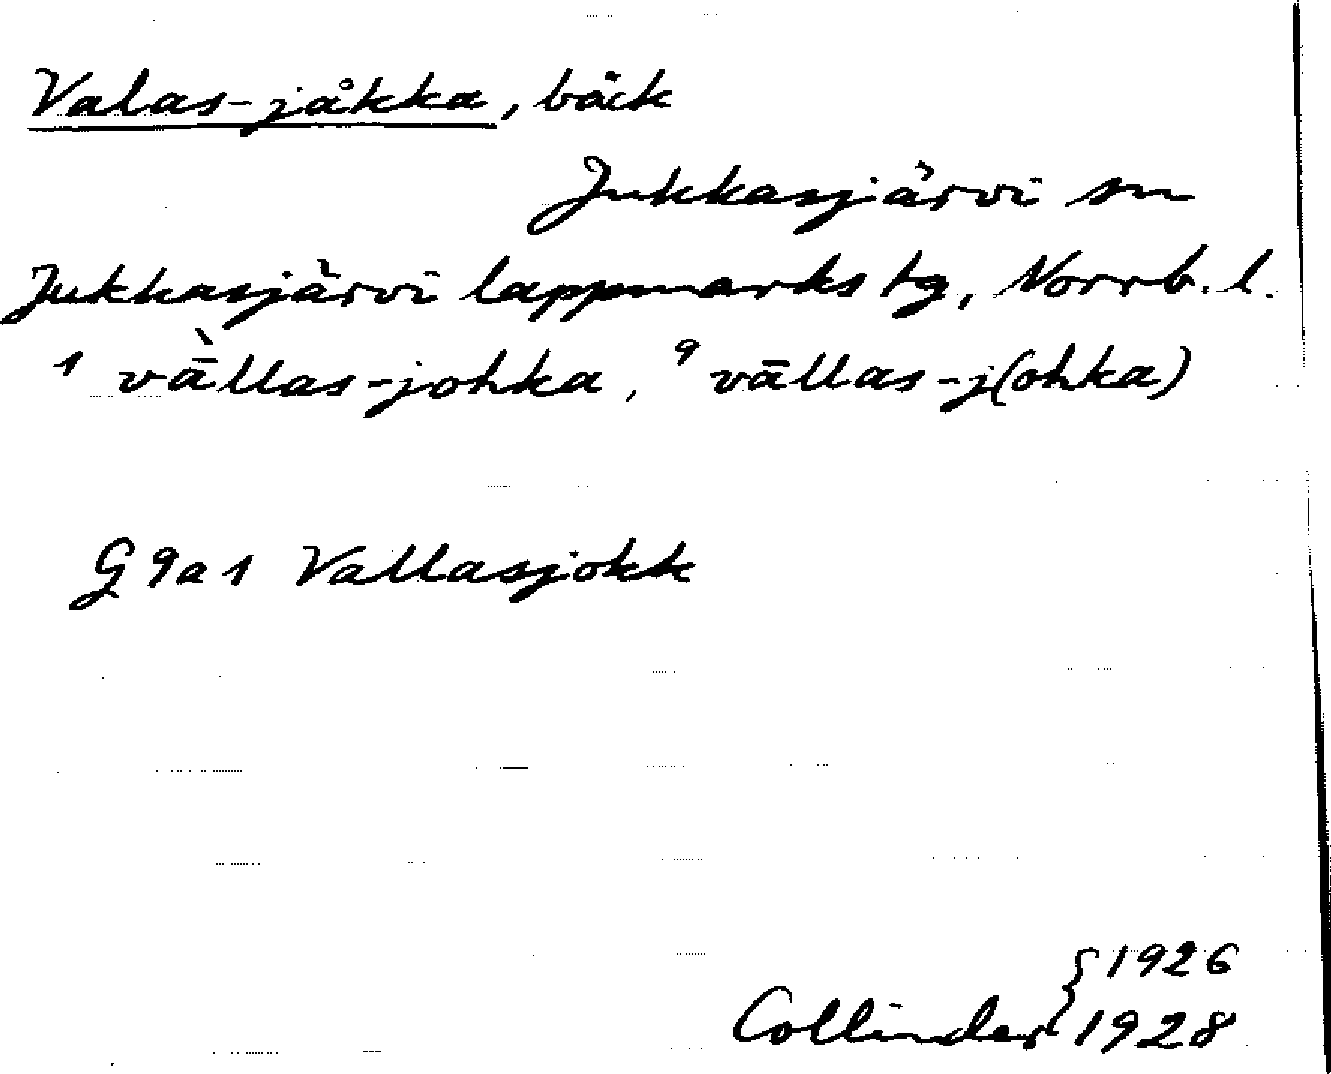 Valas-jåkka, bäck
Jukkasjärvi sn
Jukkasjärvi lappmarks tg, Norrb. l.
¹ vā̀llas-johka, ⁹ vāllas-j(ohka)
G 9a1 Vallasjokk
Collinder { 1926
1928